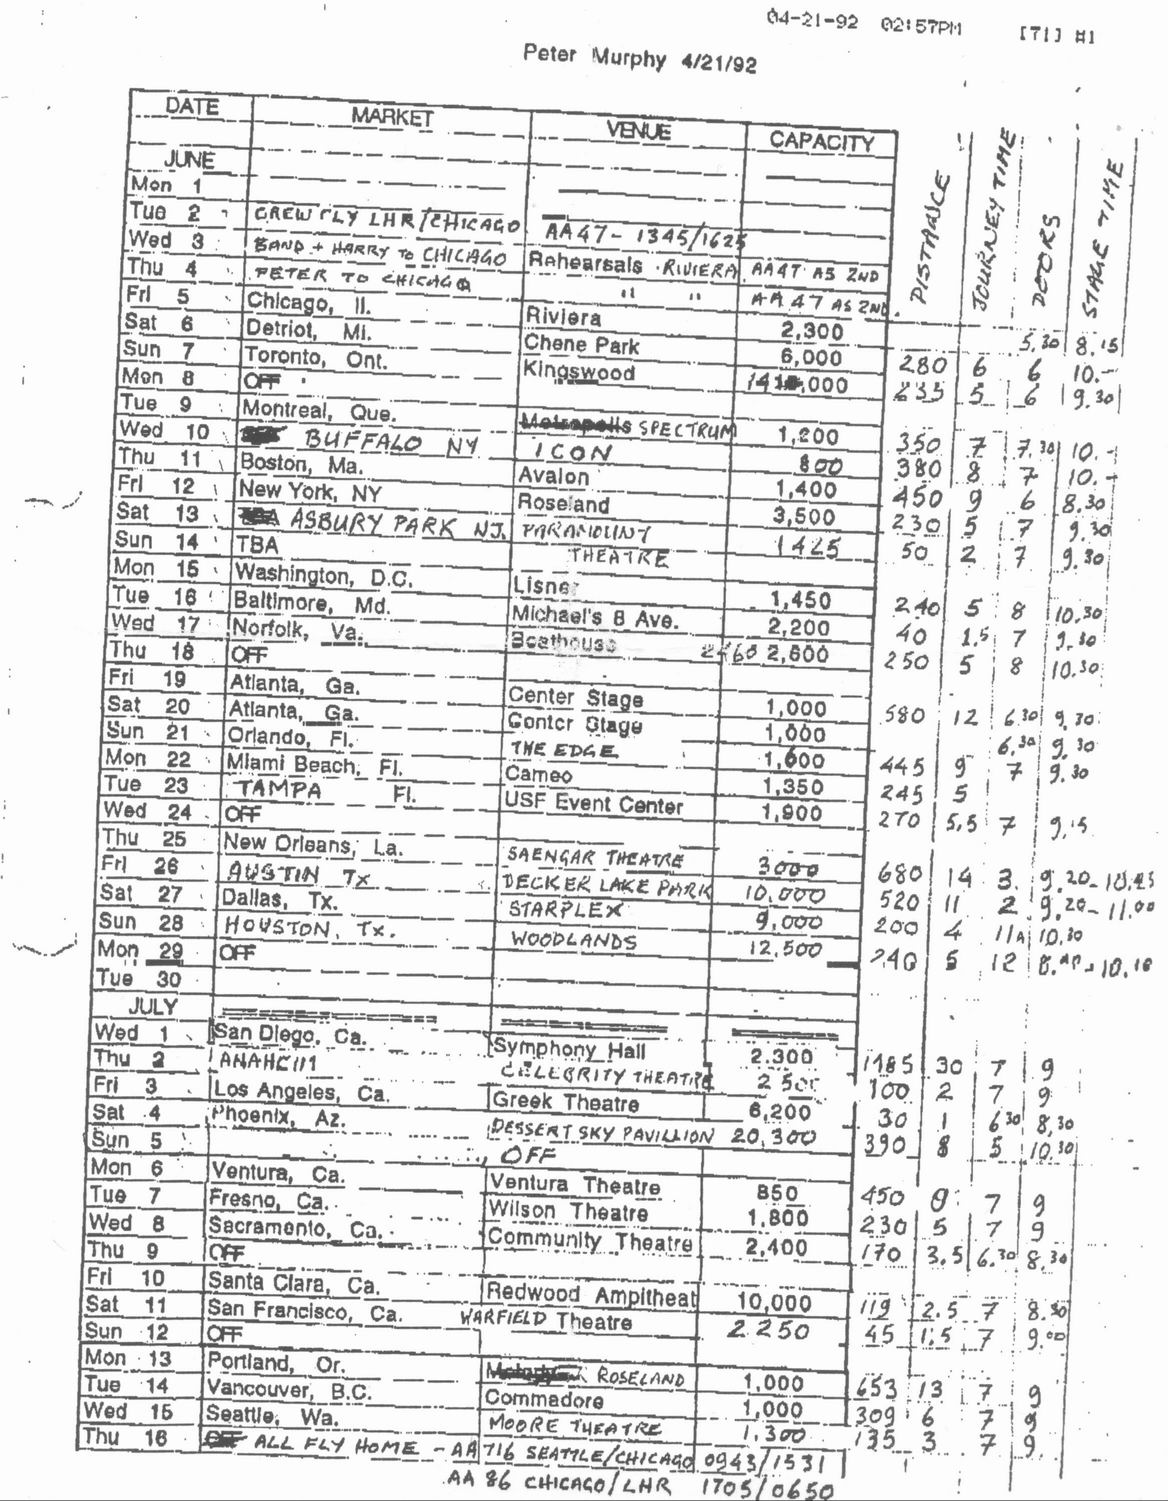 04-21-92 02:57PM [71] #1
Peter Murphy 4/21/92
DATE MARKET VENUE CAPACITY DISTANCE JOURNEY TIME DOORS STAGE TIME
JUNE
Mon 1
Tue 2 CREW FLY LHR/CHICAGO AA47 - 1345/1625
Wed 3 BAND + HARRY TO CHICAGO Rehearsals RIVIERA AA47 AS 2ND
Thu 4 PETER TO CHICAGO " " AA 47 AS 2ND.
Fri 5 Chicago, Il. Riviera 2,300 5.30 8.15
Sat 6 Detriot, Mi. Chene Park 6,000 280 6 6 10.-
Sun 7 Toronto, Ont. Kingswood 235 5 6 9.30
Mon 8 OFF
Tue 9 Montreal, Que. Metropolis SPECTRUM 1,200 350 7 7.30 10.-
Wed 10 BUFFALO NY ICON 800 380 8 7 10.-
Thu 11 Boston, Ma. Avalon 1,400 450 9 6 8.30
Fri 12 New York, NY Roseland 3,500 230 5 7 9.30
Sat 13 ASBURY PARK NJ. PARAMOUNT THEATRE 1425 50 2 7 9.30
Sun 14 TBA
Mon 15 Washington, D.C. Lisner 1,450 240 5 8 10.30
Tue 16 Baltimore, Md. Michael's 8 Ave. 2,200 40 1.5 7 9.30
Wed 17 Norfolk, Va. Boathouse 2,600 250 5 8 10.30
Thu 18 OFF
Fri 19 Atlanta, Ga. Center Stage 1,000 580 12 6.30 9.30
Sat 20 Atlanta, Ga. Center Stage 1,000 6.30 9.30
Sun 21 Orlando, Fl. THE EDGE 1,600 445 9 7 9.30
Mon 22 Miami Beach, Fl. Cameo 1,350 245 5
Tue 23 TAMPA Fl. USF Event Center 1,900 270 5.5 7 9.15
Wed 24 OFF
Thu 25 New Orleans, La. SAENGAR THEATRE 3000 680 14 3. 9.20-10.45
Fri 26 AUSTIN TX DECKER LAKE PARK 10,000 520 11 2 9.20-11.00
Sat 27 Dallas, Tx. STARPLEX 9,000 200 4 11A 10.30
Sun 28 HOUSTON, Tx. WOODLANDS 12,500 240 5 12 10.10
Mon 29 OFF
Tue 30
JULY
Wed 1 San Diego, Ca. Symphony Hall 2.300 1485 30 7 9
Thu 2 ANAHEIM CELEBRITY THEATRE 2500 100 2 7 9
Fri 3 Los Angeles, Ca. Greek Theatre 6,200 30 1 6.30 8.30
Sat 4 Phoenix, Az. DESSERT SKY PAVILLION 20,300 390 8 5 10.30
Sun 5 OFF
Mon 6 Ventura, Ca. Ventura Theatre 850 450 7 9
Tue 7 Fresno, Ca. Wilson Theatre 1,800 230 5 7 9
Wed 8 Sacramento, Ca. Community Theatre 2,400 170 3.5 6.30 8.30
Thu 9 OFF
Fri 10 Santa Clara, Ca. Redwood Ampitheat 10,000 119 2.5 7 8.30
Sat 11 San Francisco, Ca. WARFIELD Theatre 2250 45 1.5 7 9.00
Sun 12 OFF
Mon 13 Portland, Or. ROSELAND 1,000 653 13 7 9
Tue 14 Vancouver, B.C. Commadore 1,000 309 6 7 9
Wed 15 Seattle, Wa. MOORE THEATRE 1,300 135 3 7 9.
Thu 16 OFF ALL FLY HOME - AA 716 SEATTLE/CHICAGO 0943/1531
AA 86 CHICAGO/LHR 1705/0650